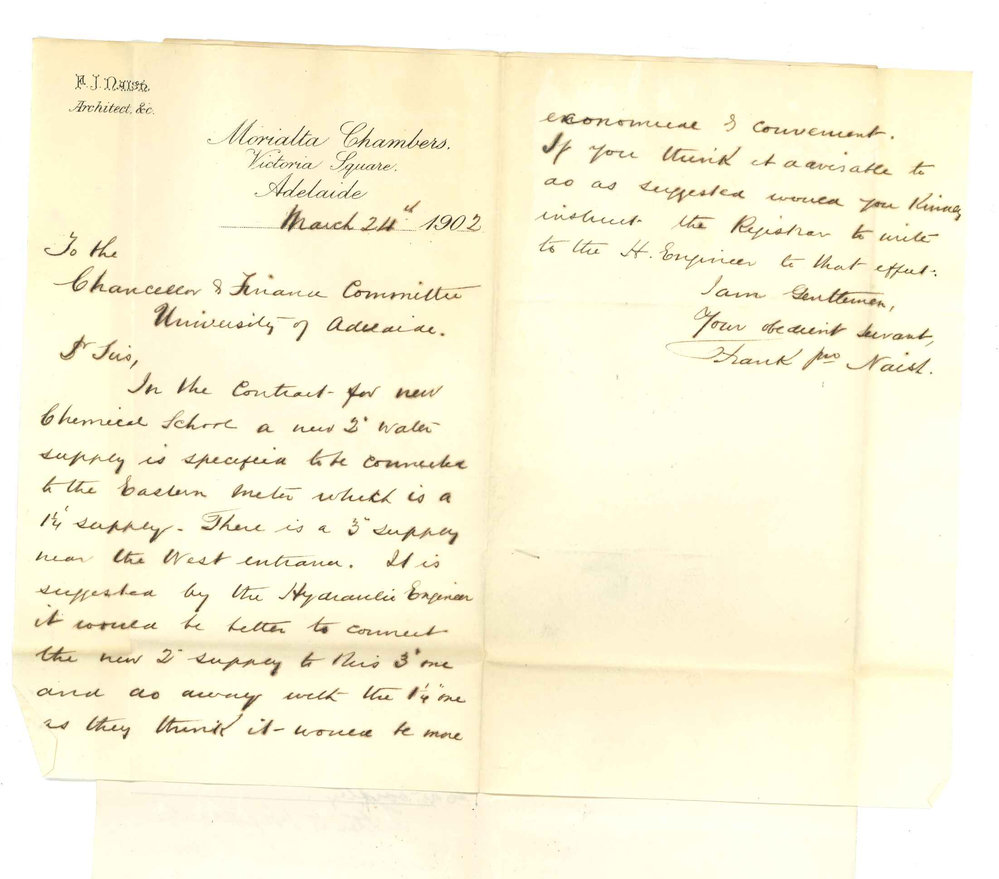 F. J. Naish
Architect, &c.
Morialta Chambers.
Victoria Square.
Adelaide
March 24th 1902
To the
Chancellor & Finance Committee
University of Adelaide.
Dr Sirs,
In the Contract for new
Chemical School a new 2" Water
supply is specified to be connected
to the Eastern Meter which is a
1¼" supply. There is a 3" supply
near the West entrance. It is
suggested by the Hydraulic Engineer
it would be better to connect
the new 2" supply to this 3" one
and do away with the 1¼" one
as they think it would be more
economical & convenient.
If you think it advisable to
do as suggested would you kindly
instruct the Registrar to write
to the H. Engineer to that effect.
I am Gentlemen,
Your obedient servant,
Frank Jno Naish.